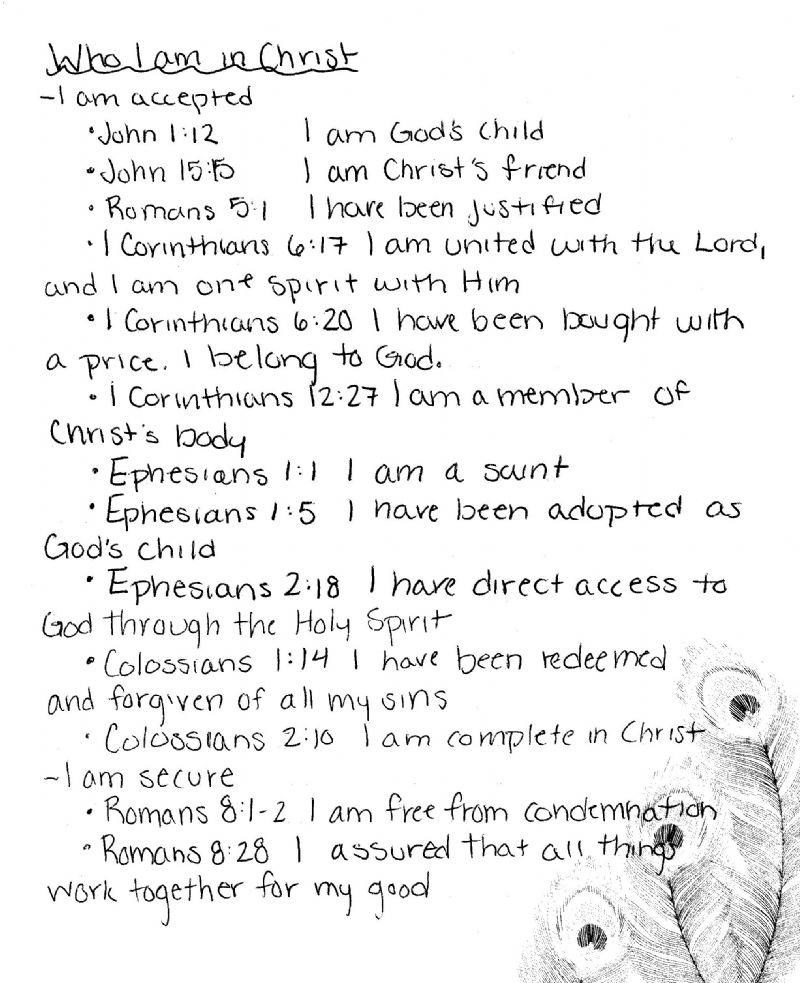 Who I am in Christ
~I am accepted
• John 1:12 I am God's Child
• John 15:15 I am Christ's friend
• Romans 5:1 I have been justified
• 1 Corinthians 6:17 I am united with the Lord,
and I am one spirit with Him
• 1 Corinthians 6:20 I have been bought with
a price. I belong to God.
• 1 Corinthians 12:27 I am a member of
Christ's body
• Ephesians 1:1 I am a saint
• Ephesians 1:5 I have been adopted as
God's child
• Ephesians 2:18 I have direct access to
God through the Holy Spirit
• Colossians 1:14 I have been redeemed
and forgiven of all my sins
• Colossians 2:10 I am complete in Christ
~I am secure
• Romans 8:1-2 I am free from condemnation
• Romans 8:28 I assured that all things
work together for my good